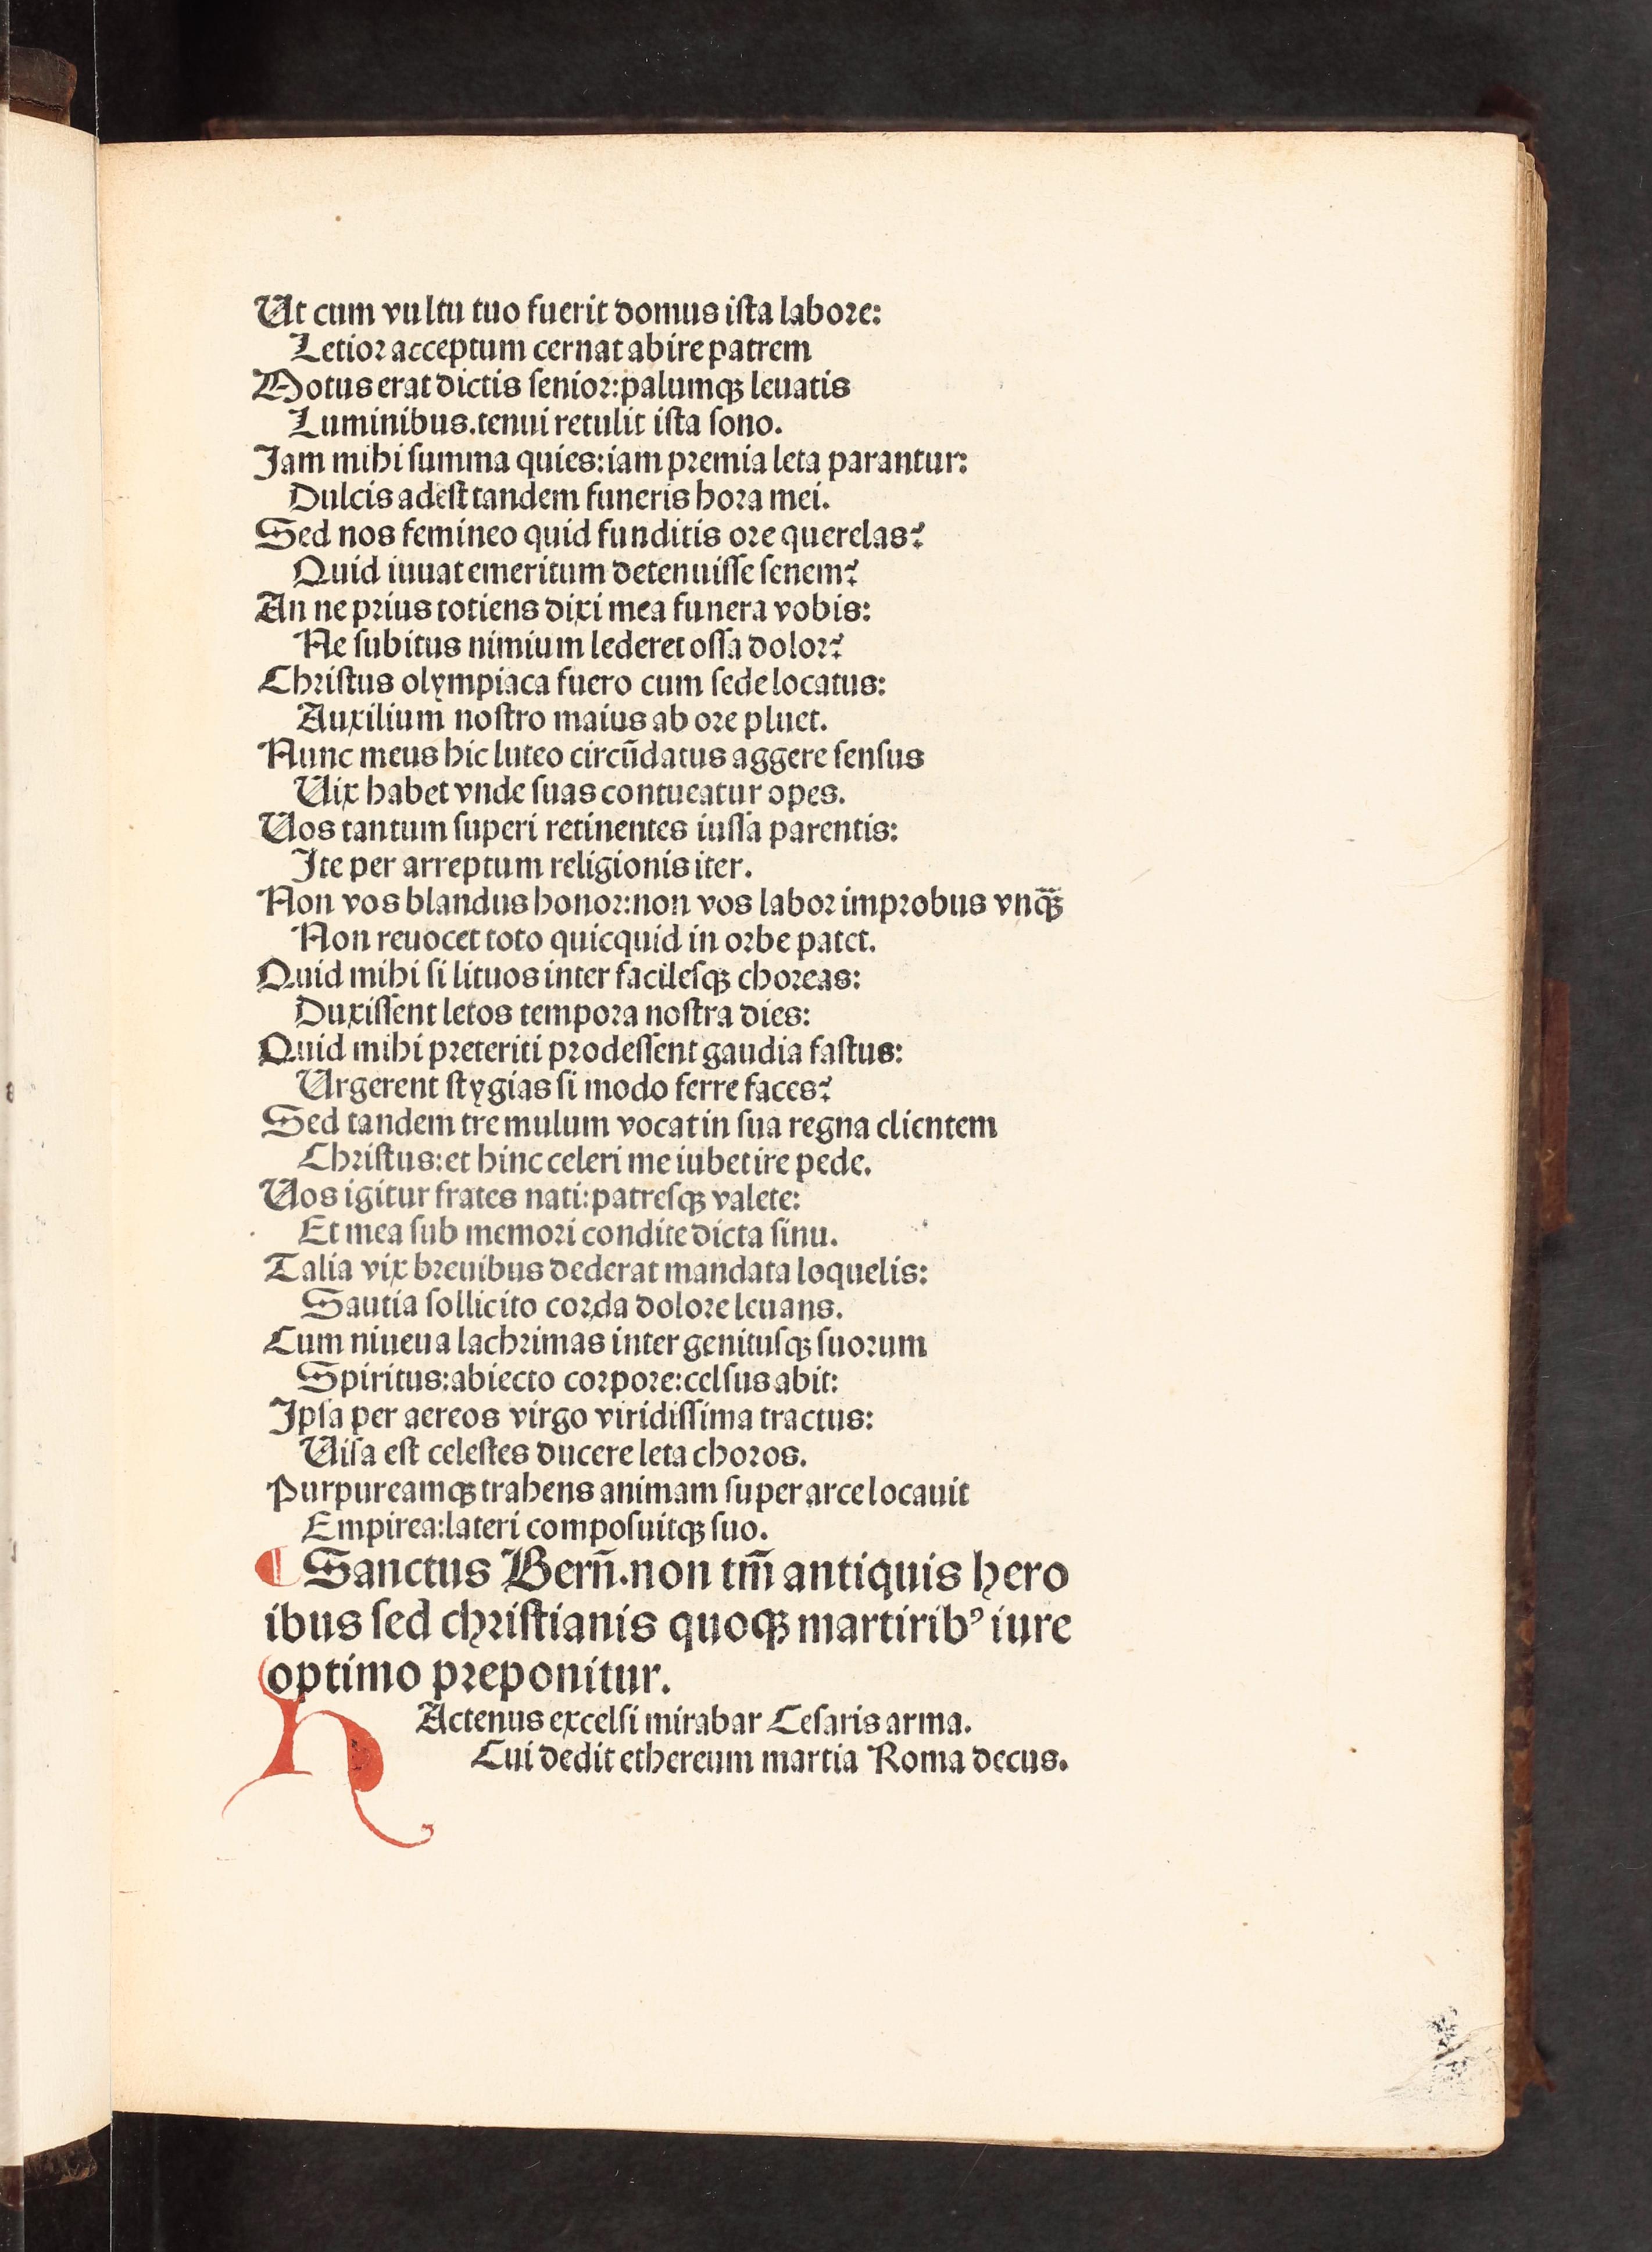 Ut cum vultu tuo fuerit domus ista labore:
Letior acceptum cernat abire patrem
Motus erat dictis senior: palumqꝫ leuatis
Luminibus. tenui retulit ista sono.
Jam mihi summa quies: iam premia leta parantur:
Dulcis adest tandem funeris hora mei.
Sed nos femineo quid funditis ore querelas?
Quid iuuat emeritum detenuisse senem?
An ne prius totiens dixi mea funera vobis:
Ne subitus nimium lederet ossa dolor?
Christus olympiaca fuero cum sede locatus:
Auxilium nostro maius ab ore pluet.
Nunc meus hic luteo circūdatus aggere sensus
Uix habet vnde suas contueatur opes.
Uos tantum superi retinentes iussa parentis:
Ite per arreptum religionis iter.
Non vos blandus honor: non vos labor improbus vnq̄ꝫ
Non reuocet toto quicquid in orbe patet.
Quid mihi si lituos inter facilesqꝫ choreas:
Duxissent letos tempora nostra dies:
Quid mihi preteriti prodessent gaudia fastus:
Urgerent stygias si modo ferre faces?
Sed tandem tremulum vocat in sua regna clientem
Christus: et hinc celeri me iubet ire pede.
Uos igitur frates nati: patresqꝫ valete:
Et mea sub memori condite dicta sinu.
Talia vix breuibus dederat mandata loquelis:
Sautia sollicito corda dolore leuans.
Cum niueua lachrimas inter genitusqꝫ suorum
Spiritus: abiecto corpore: celsus abit:
Ipsa per aereos virgo viridissima tractus:
Uisa est celestes ducere leta choros.
Purpureamqꝫ trahens animam super arce locauit
Empirea: lateri composuitqꝫ suo.
¶ Sanctus Bern̄. non tm̄ antiquis hero
ibus sed christianis quoqꝫ martiribꝰ iure
optimo preponitur.
HActenus excelsi mirabar Cesaris arma.
Cui dedit ethereum martia Roma decus.